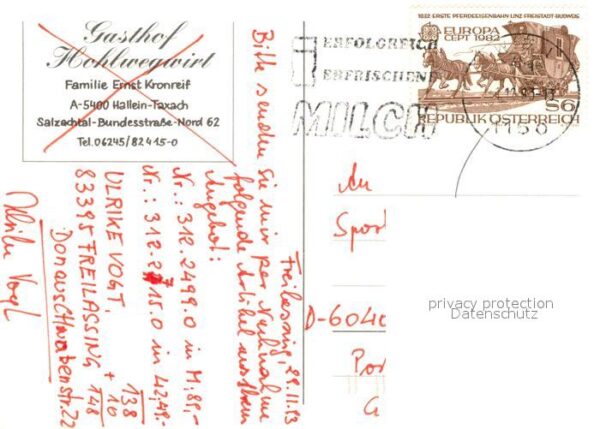 Gasthof
Hohlwegwirt
Familie Ernst Kronreif
A-5400 Hallein-Taxach
Salzachtal-Bundesstraße-Nord 62
Tel. 06245/82415-0
1832 ERSTE PFERDEEISENBAHN LINZ-FREISTADT-BUDWEIS
EUROPA
CEPT 1982
S6
REPUBLIK ÖSTERREICH
ERFOLGREICH
ERFRISCHEND
MILCH
1150
Freilassing, 29.11.93
Bitte senden Sie mir per Nachnahme
folgende Artikel aus Ihrem
Angebot:
Nr.: 312.2499.0 in M, 89,-
Nr.: 312- 15.0 in 42, 49.-
138
+ 10
148
ULRIKE VOGT,
83395 FREILASSING
DONAUSCHWABENSTR. 22
Ulrike Vogt
An
Spor
D-604
Po
privacy protection
Datenschutz